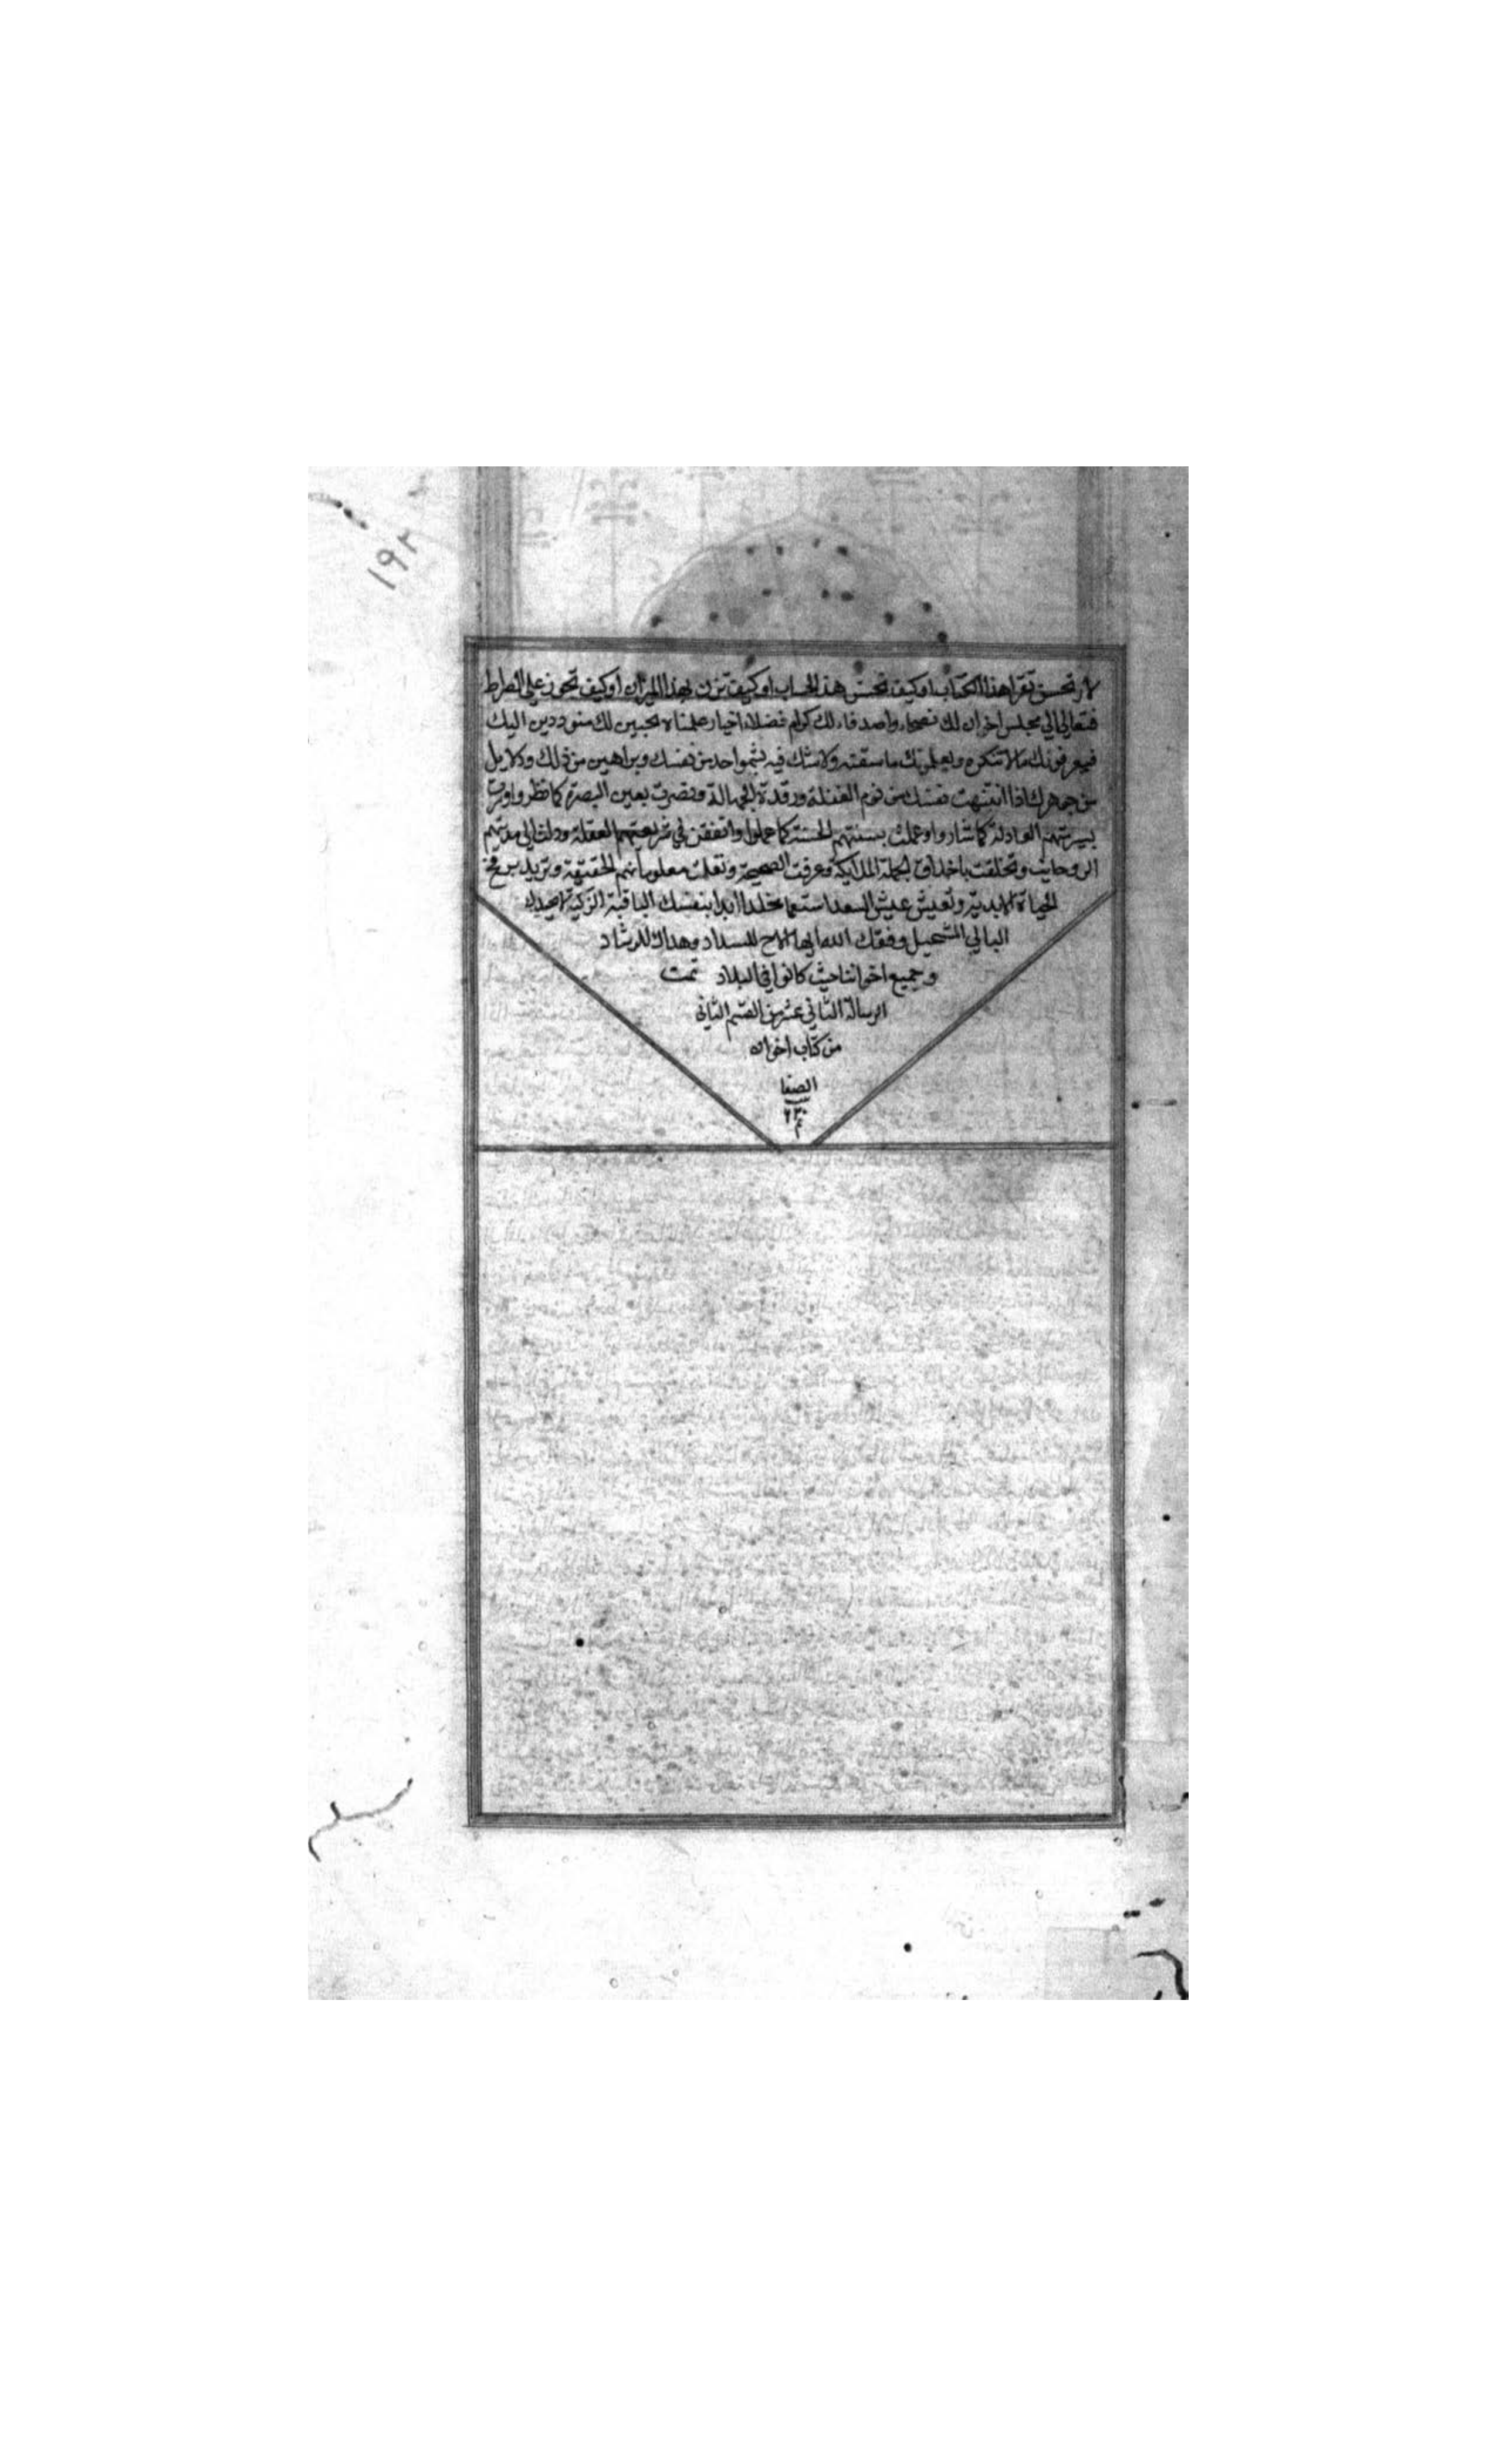 ١٩٢
لا تحسن تقرا هذا الكتاب او كيف تحسن هذ الحساب او كيف تزن بهذا الميزان او كيف تجوز على الصراط
فتعالى الى مجلس اخوان لك نصحاء واصدقاء لك كرام فضلاء اخيار علماء محبين لك متوددين اليك
فيعرفونك مالا تنكره ويعلمونك ما سقته ولا شك فيه بشواحد من نفسك وبراهين من ذلك ودلايل
من جوهرك اذا انتبهت نفسك من نوم الغفلة ورقدة الجهالة ونصرت بعين البصيرة كما نظروا وسرت
بسيرتهم العادلة كما ساروا وعملت بسنتهم الحسنة كما عملوا واتفقت في شريعتهم العقلية ودخلت الى مدينتهم
الروحانية وتخلقت باخلاق الملايكة وعرفت الصحيحة ونقلت معلوماتهم الحقيقية وتريد بروح
الحياة الابدية وتعيش عيش السعدا متنعما مخلدا ابدا بنفسك الباقية الزكية لا بجسدك
البالي المستحيل وفقك الله ايها الاخ للسداد وهداك للرشاد
وجميع اخواننا حيث كانوا في البلاد تمت
الرسالة الثاني عشر من القسم الثاني
من كتاب اخوان
الصفا